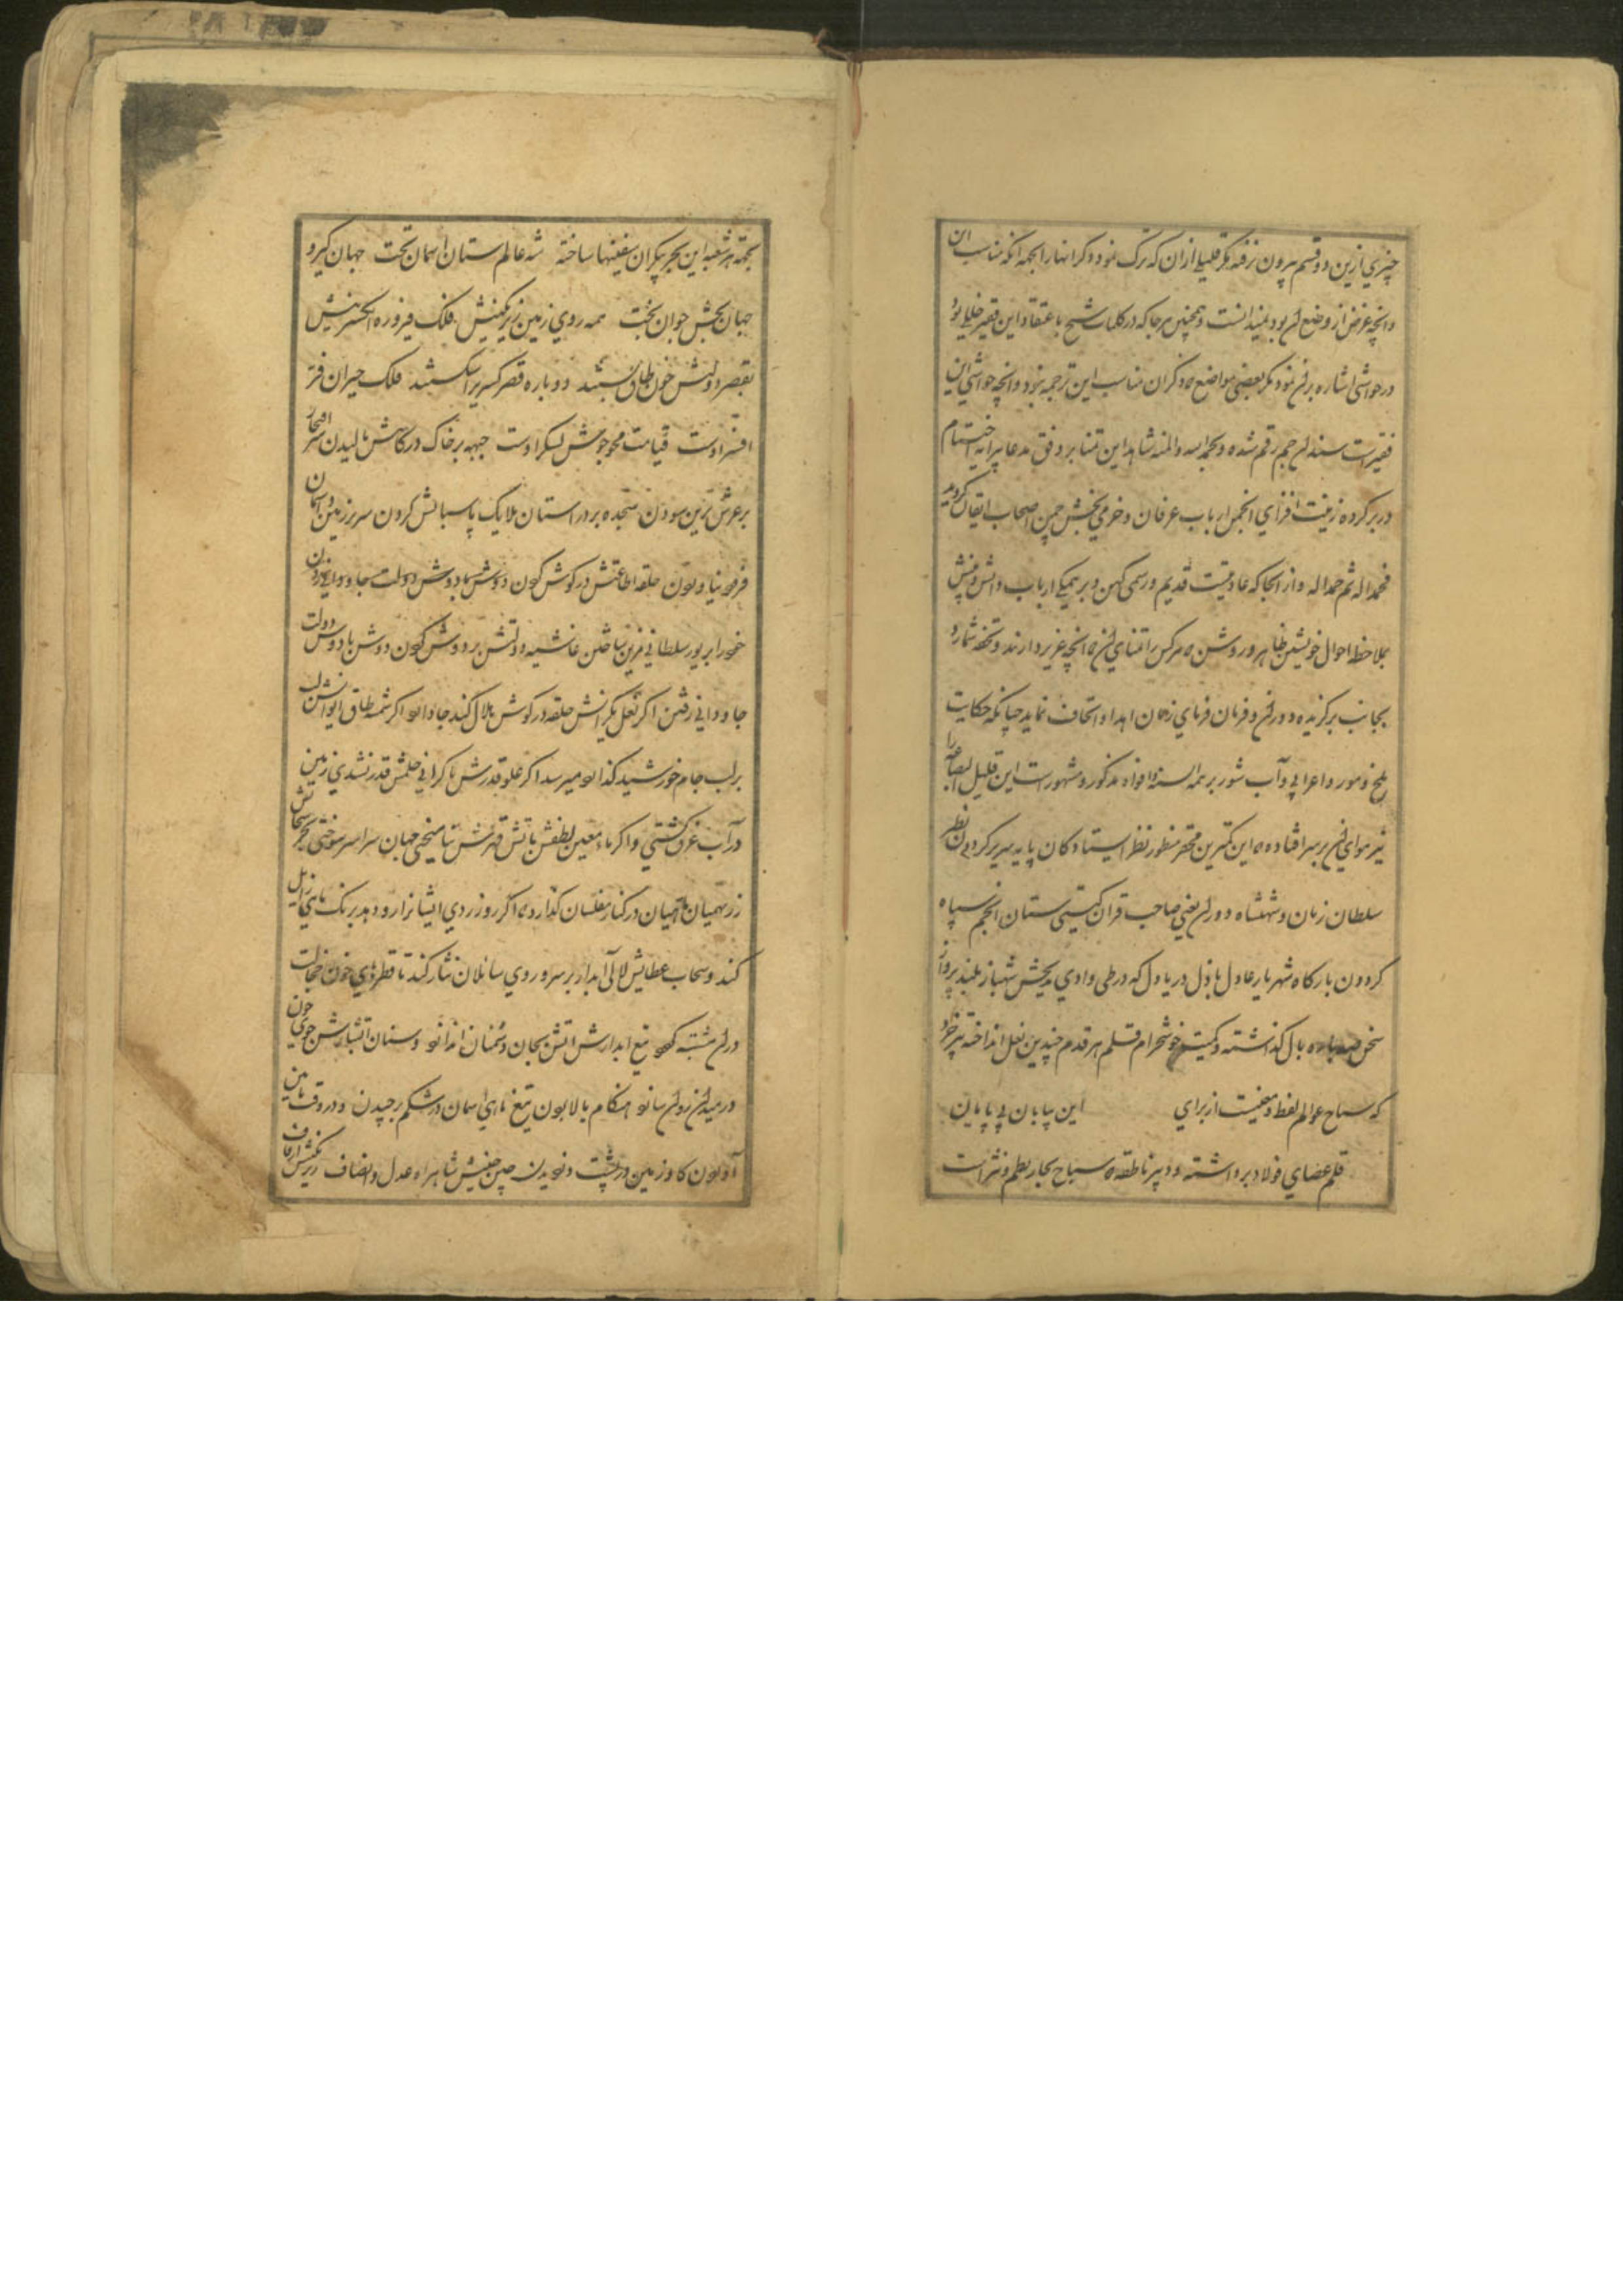 چیزی ازین دو قسم بیرون نرفته مگر قلیلی از ان که ترک نموده ذکر انها را بجهه انکه مناسب این
و انچه غرض از وضع ان بود نمیدانست و همچنین هر جا که در کلمات شیخ باعتقاد این فقیر خللی بود
در حواشی اشاره بران نمود مگر بعضی مواضع که ذکر ان مناسب این ترجمه نبود و انچه حواشی این
فقیر است رقم شده و بحمد الله والمنه شاهد این تمنا بر وفق مدعا پیرایه اختتام
در بر کرده زینت افزای انجمن ارباب عرفان و خرمی بخش چمن اصحاب ایقان کردید
فحمدا له ثم حمدا له و از انجا که عادتیست قدیم و رسمی کهن و بر همکی ارباب دانش و بینش
بملاحظه احوال خویشتن ظاهر و روشن که هر کس را تمنای ان که انچه عزیز دارند و تحفه شمارد
بجانب برکزیده دوران و فرمان فرمای زمان اهدا و اتحاف نماید چنانکه حکایت
ملخ و مور و اعرابی و آب شور بر همه السنه و افواه مذکور و مشهور است این قلیل البضاعه را
نیز هوای ان بر سر افتاده که این کمترین محقر منظور نظر ایستادکان پایه سریر کردون نظیر
سلطان زمان و شهنشاه دوران یعنی صاحب قران کیتی ستان انجم سپاه
کردون بارکاه شهریار عادل باذل دریا دل که در طی وادی مدیحش شهباز بلند پرواز
سخن بال کذاشته و کمیت خوشخرام قلم هر قدم چندین نعل انداخته پیر خرد
که سیاح عوالم لفظ و معنیست از برای این بیابان بی پایان
قلم عصای فولاد برداشته و دبیر ناطقه که سباح بحار نظم و نثر است
بجهة هر شعبه این بحر بیکران سفینها ساخته شه عالم ستان اسمان تخت جهان کیر و
جهان بخش جوان بخت همه روی زمین زیر نکینش فلک فیروزه انکشترینش
بقصر دولتش چون طاق بستند دوباره قصر کسری را شکستند فلک حیران فر
افسر اوست قیامت محو جوش لشکر اوست جبهه بر خاک درکاهش مالیدن سر افتخار
بر عرش برین سودن سجده بر در استان ملایک پاسبانش کردن سر بر زمین و اسمان
فرو نیاوردن حلقه اطاعتش در کوش کردن دوش بدوش دولت جاودانی
خود را بر پور سلطانی قرین ساختن غاشیه دولتش بر دوش کردن دوش بادوش دولت
جاودانی رفتن اکر نعل یکرانش حلقه در کوش هلال کند جا دارد اکر شمسه طاق ایوانش لب
بر لب جام خورشید کذارد میرسد اکر علو قدرش با کرانی حلمش قدر نشدی زمین
در آب غرق کشتی و اکر ماء معین لطفش باتش قهرش نیامیختی جهان سراسر سوختی
زر همیان در کنار مفلسان کذارد تا اکر روز زردی ایشانرا رو دهد برنک زایل
کند و سحاب عطایش لالی ابدار بر سر و روی سائلان نثار کند تا قطرهای خون خجالت
دران مشتبه کردد تیغ ابدارش اتش بجان دشمنان اندازد و سنان اتشبارش جوی خون
در میدان روان سازد هنکام بالا بردن تیغ ماهی اسمان در شکم دزدیدن و در وقت پایین
آوردن کاو زمین در پشت دزدیدن چین جبینش شاهراه عدل و انصاف